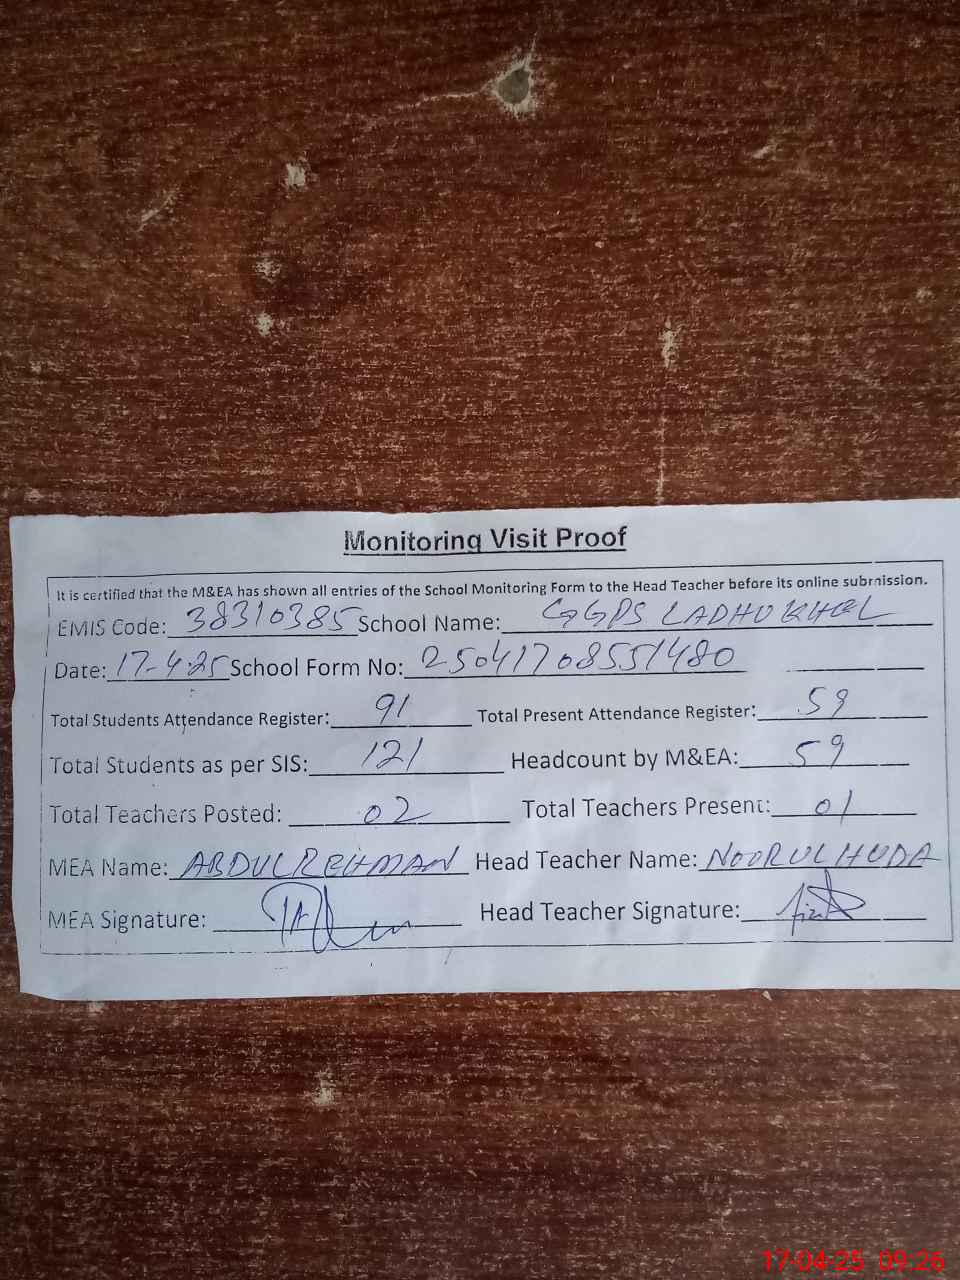 Monitoring Visit Proof
It is certified that the M&EA has shown all entries of the School Monitoring Form to the Head Teacher before its online submission.
EMIS Code: 38310385 School Name: GGPS LADHU KHEL
Date: 17-4-25 School Form No: 25041708551480
Total Students Attendance Register: 91 Total Present Attendance Register: 59
Total Students as per SIS: 121 Headcount by M&EA: 59
Total Teachers Posted: 02 Total Teachers Present: 01
MEA Name: ABDUL REHMAN Head Teacher Name: NOORUL HUDA
MEA Signature: Head Teacher Signature:
17-04-25 09:26